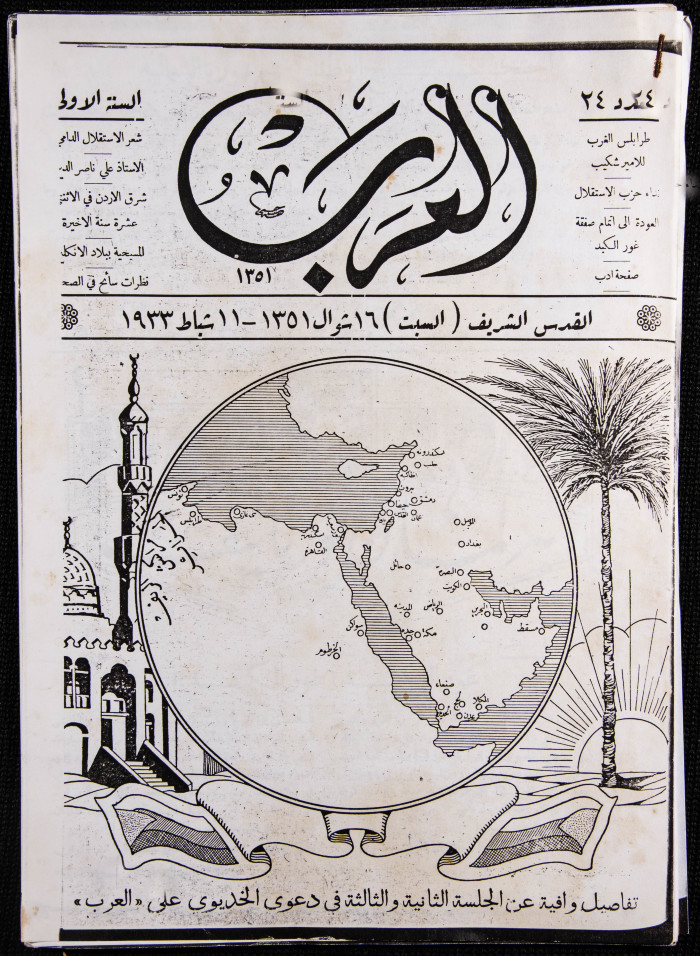 العرب
١٣٥١
عدد ٢٤
طرابلس الغرب
للامير شكيب
حزب الاستقلال
العودة الى اتمام صفقة
غور الكبد
صفحة ادب
السنة الاولى
شعر الاستقلال الدامي
الاستاذ علي ناصر الدين
شرق الاردن في الاثنتي
عشرة سنة الاخيرة
المسيحية ببلاد الانكليز
نظرات سائح في الصحف
القدس الشريف ( السبت ) ١٦ شوال ١٣٥١ – ١١ شباط ١٩٣٣
حلب
انطاكية
بيروت
دمشق
حيفا
القدس
عمان
تونس
طرابلس
بني غازي
القاهرة
بغداد
البصرة
الكويت
حائل
المدينة
الرياض
البحرين
مسقط
مكة
جدة
سواكن
الخرطوم
صنعاء
المكلا
لحج
عدن
تفاصيل وافية عن الجلسة الثانية والثالثة في دعوى الخديوي على «العرب»